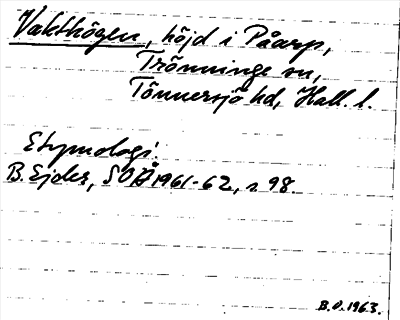 Vakthögen, höjd i Påarp,
Trönninge sn,
Tönnersjö hd, Hall. l.
Etymologi.
B. Ejder, SOÅ 1961-62, s. 98.
B.O. 1963.